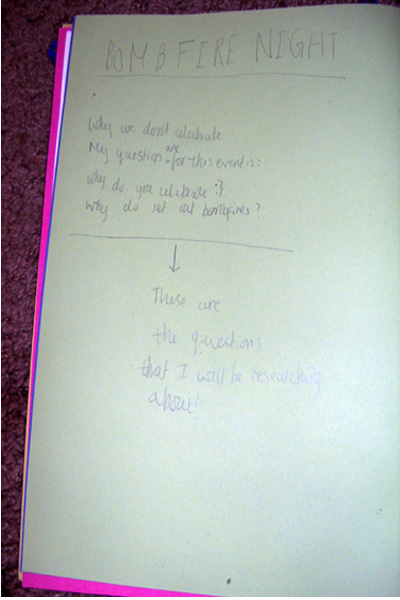 BOMBFIRE NIGHT
Why we don't celebrate
are
My question for this event is:
why do you celebrate it?
Why do set out bombfires?
These are
the questions
that I will be researching
about!